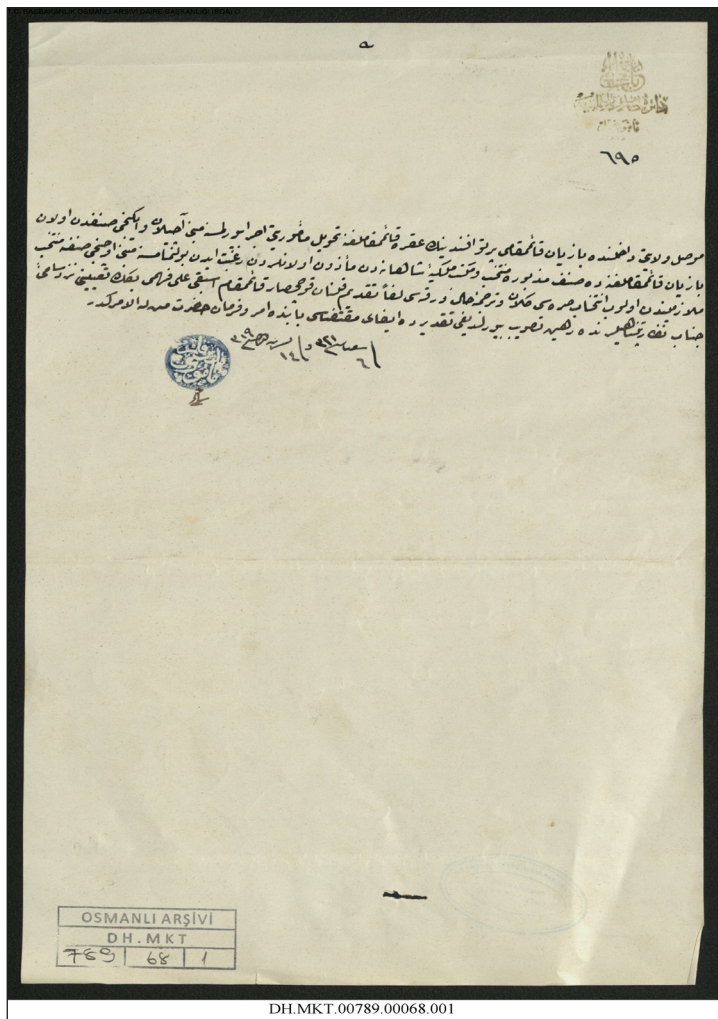 ٦٩٥
موصل ولايتى داخلنده بازيان قائمقامى پرتو افندينك عقره قائمقاملغنه تحويل مأموريتى اجرا بيورلمسنه مبنى آچيلان و ايكنجى صنفدن اولان
بازيان قائمقاملغنه ده صنف مذكوره منتخب و مكتب ملكيۀ شاهانه دن مأذون اولانلردن رغبت ايدن بولنمامسنه مبنى اوچنجى صنفه منتخب
ملازميندن اولوب انتخاب و ترجمۀ حالى ورقه سى لفاً تقديم قلنان قوچحصار قائمقام اسبقى على فهمى بكك تعيينى نزد سامئ
جناب نظارتپناهيلرنده رهين تصويب بيورلديغى تقديرده ايفاى مقتضاسى بابنده امر و فرمان حضرت من له الامركدر
فى ٦ سنه ٣٢١ و فى ١٤ سنه ٣١٩
OSMANLI ARŞİVİ
DH.MKT
789 68 1
DH.MKT.00789.00068.001